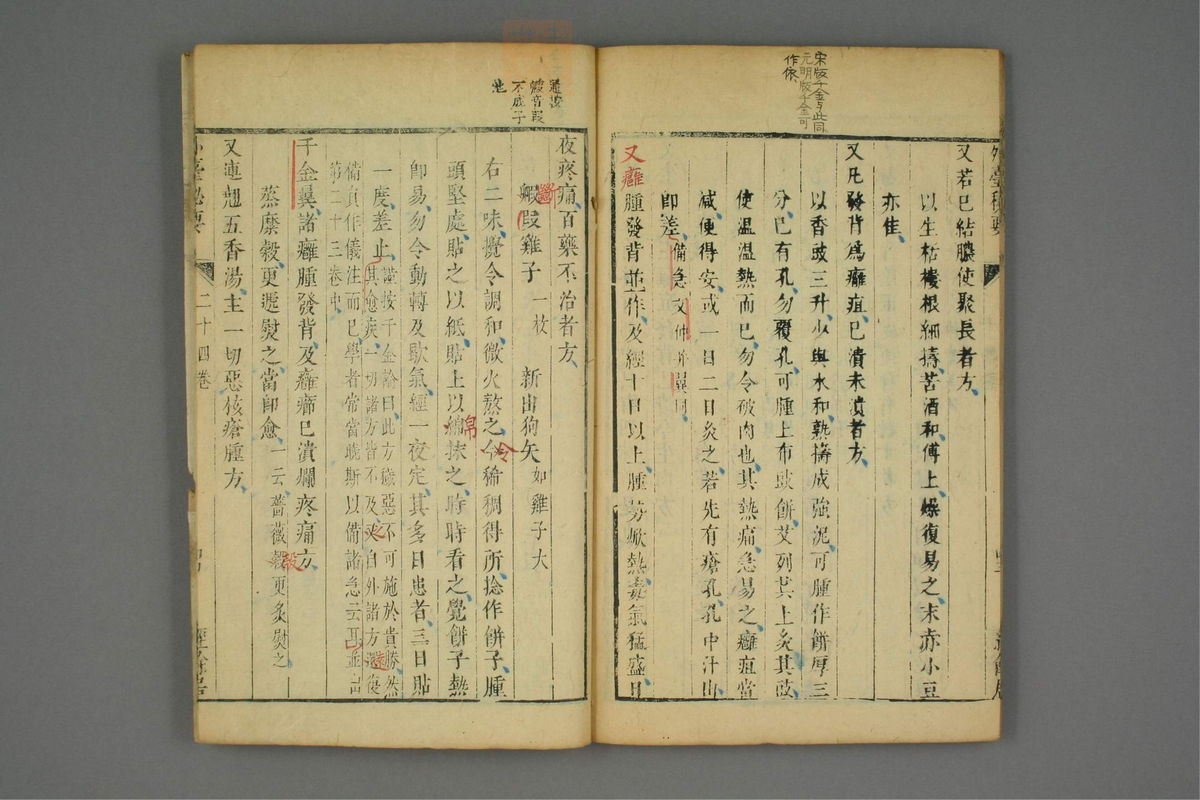 宋版千金与此同
元明版千金可
作依
又若已結膿使聚長者方
以生栝樓根細擣苦酒和傅上燥復易之末赤小豆
亦佳
又凡發背爲癰疽已潰未潰者方
以香豉三升少與水和熟擣成強泥可腫作餅厚三
分已有孔勿覆孔可腫上布豉餅艾列其上灸其豉
使温温熱而已勿令破肉也其熱痛急易之癰疽當
減便得安或一日二日灸之若先有瘡孔孔中汁出
即差備急文仲翼同
又癰腫發背並作及經十日以上腫勢焮熱毒氣猛盛日
鰕音叚
不成子
也
夜疼痛百藥不治者方
鰕雞子一枚 新出狗矢如雞子大
右二味攪令調和微火熬之令稀稠得所捻作餅子腫
頭堅處貼之以紙貼上以綿抹之時時看之覺餅子熱
即易勿令動轉及歇氣經一夜定其多日患者三日貼
一度差止謹按千金論曰此方穢惡不可施於貴勝然
其愈疾一切諸方皆不及之自外諸方還復
備員作儀注而已學者常當曉斯以備諸急云耳並出
第二十三卷中
千金翼諸癰腫發背及癰癤已潰爛疼痛方
蒸糜穀更遞熨之當即愈一云薔薇穀更炙熨之
又連翹五香湯主一切惡核瘡腫方
外臺秘要
二十四卷